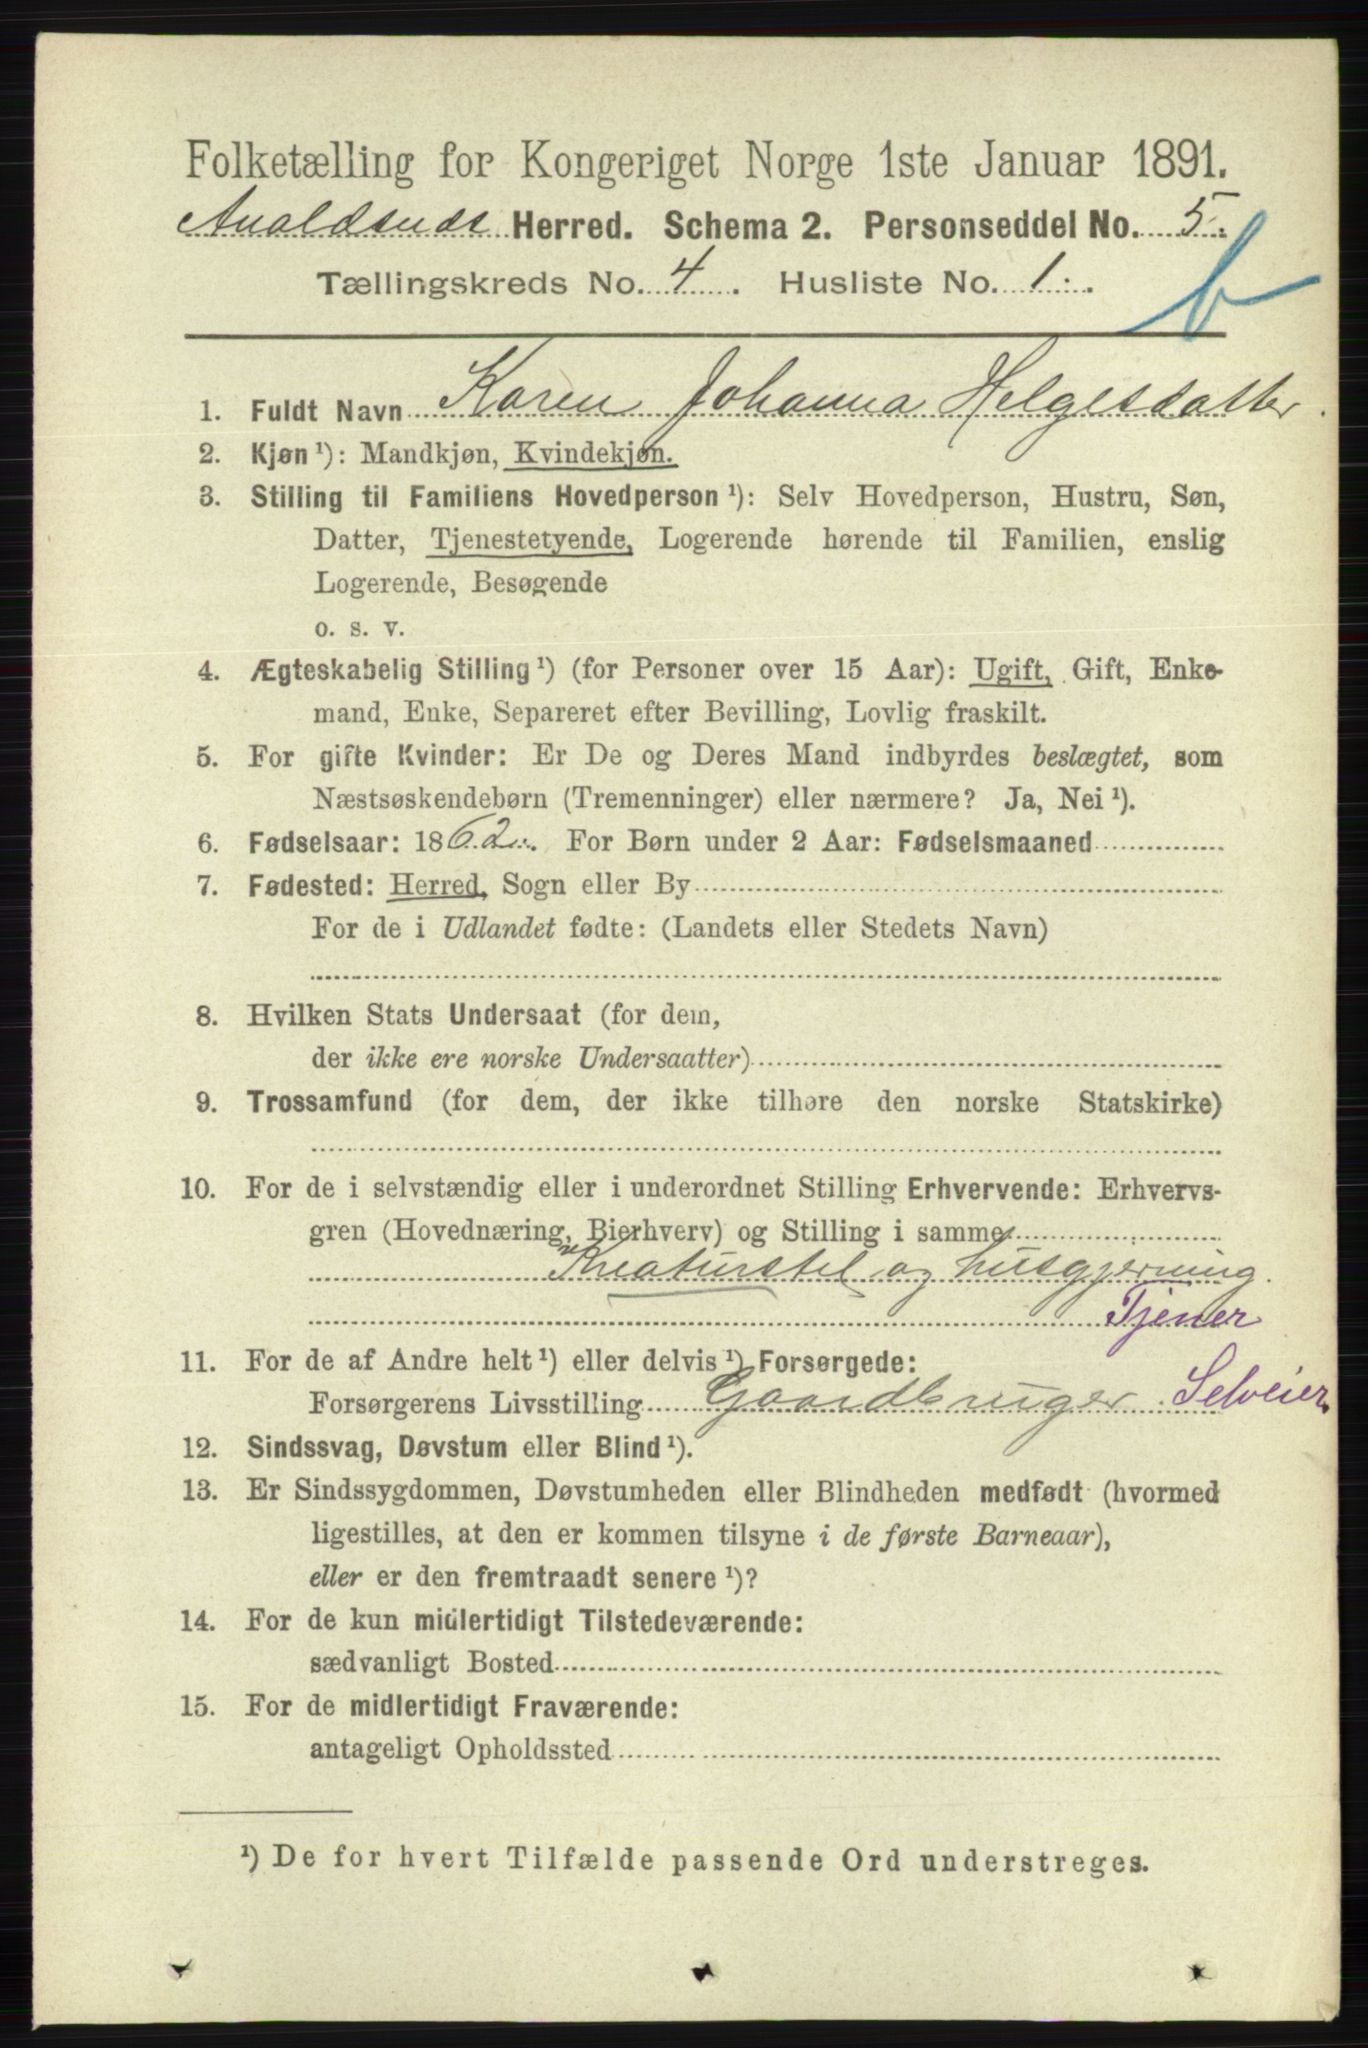 Folketælling for Kongeriget Norge 1ste Januar 1891.
Avaldsnds Herred. Schema 2. Personseddel No. 5.
Tællingskreds No. 4. Husliste No. 1.
b
1. Fuldt Navn Karen Johanna Helgesdatter.
2. Kjøn ¹): Mandkjøn, Kvindekjøn.
3. Stilling til Familiens Hovedperson ¹): Selv Hovedperson, Hustru, Søn,
Datter, Tjenestetyende, Logerende hørende til Familien, enslig
Logerende, Besøgende
o. s. v.
4. Ægteskabelig Stilling ¹) (for Personer over 15 Aar): Ugift, Gift, Enke-
mand, Enke, Separeret efter Bevilling, Lovlig fraskilt.
5. For gifte Kvinder: Er De og Deres Mand indbyrdes beslægtet, som
Næstsøskendebørn (Tremenninger) eller nærmere? Ja, Nei ¹).
6. Fødselsaar: 1862. For Børn under 2 Aar: Fødselsmaaned
7. Fødested: Herred, Sogn eller By
For de i Udlandet fødte: (Landets eller Stedets Navn)
8. Hvilken Stats Undersaat (for dem,
der ikke ere norske Undersaatter)
9. Trossamfund (for dem, der ikke tilhøre den norske Statskirke)
10. For de i selvstændig eller i underordnet Stilling Erhvervende: Erhvervs-
gren (Hovednæring, Bierhverv) og Stilling i samme
Kreaturstel og husgjerning.
Tjener
11. For de af Andre helt ¹) eller delvis ¹) Forsørgede:
Forsørgerens Livsstilling Gaardbruger. Selveier.
12. Sindssvag, Døvstum eller Blind ¹).
13. Er Sindssygdommen, Døvstumheden eller Blindheden medfødt (hvormed
ligestilles, at den er kommen tilsyne i de første Barneaar),
eller er den fremtraadt senere ¹)?
14. For de kun midlertidigt Tilstedeværende:
sædvanligt Bosted
15. For de midlertidigt Fraværende:
antageligt Opholdssted
¹) De for hvert Tilfælde passende Ord understreges.